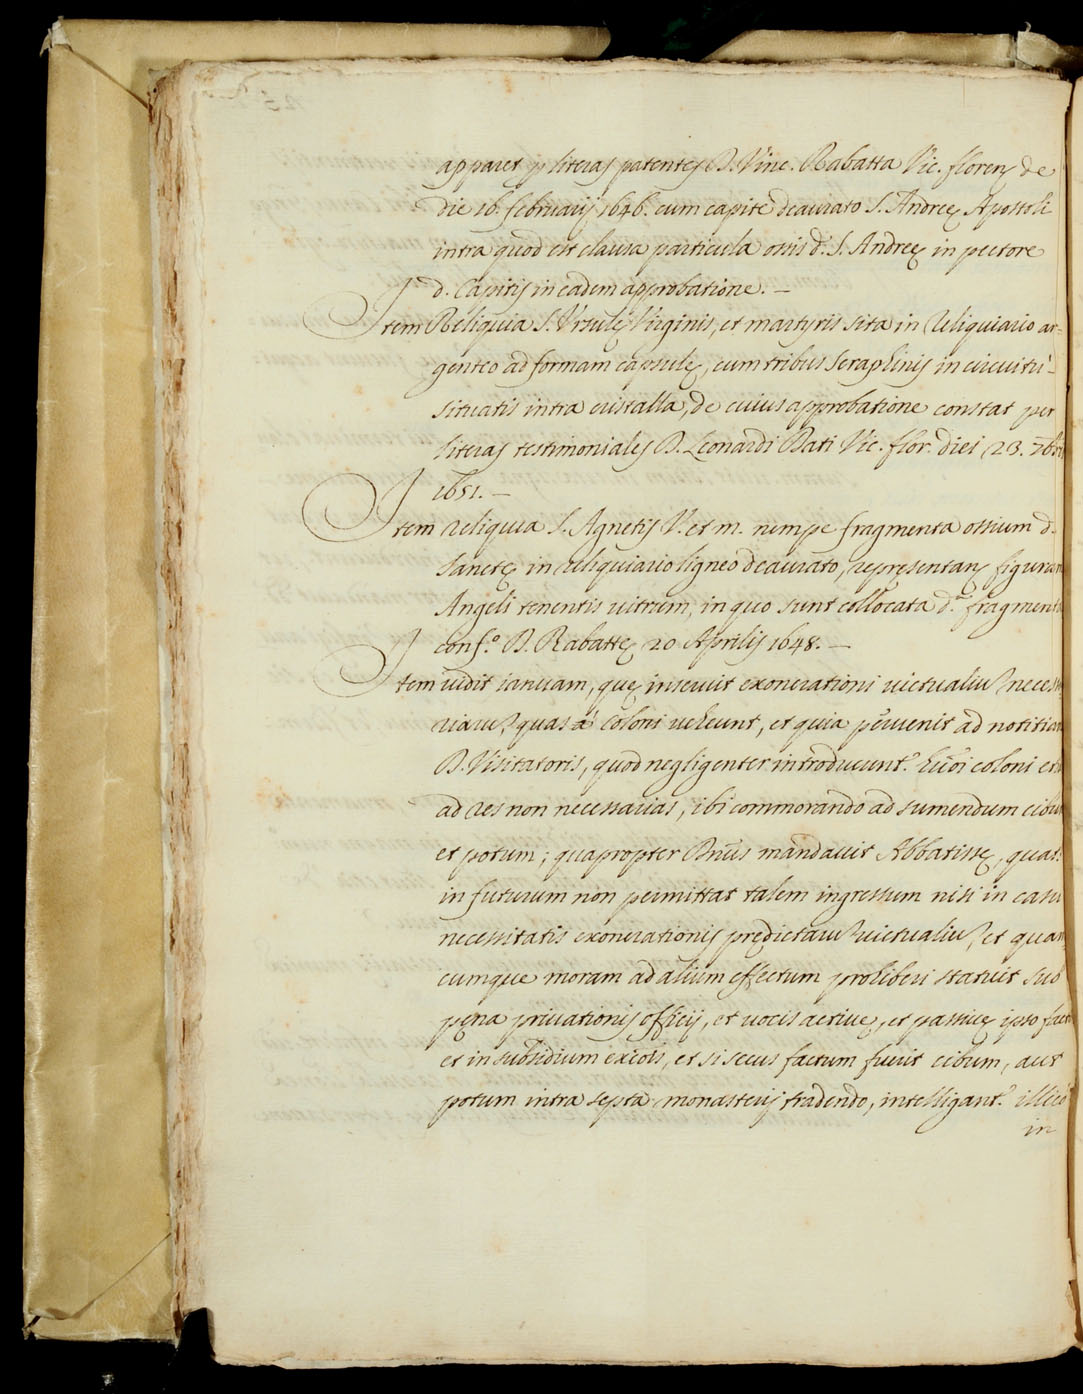 apparet p literas patentes D. Vinc. Rabatta Vic. floren, de
die 16. februarij 1646. cum capite deaurato S. Andreę Apostoli
intra quod est clausa particula ossis d. S. Andreę in pectore
d. Capitis in eadem approbatione. —
Item Reliquia S. Vrsulę Virginis, et martyris sita in Reliquiario ar=
genteo ad formam capsulę, cum tribus seraphinis in circuitu
situatis intra cristalla, de cuius approbatione constat per
literas testimoniales D. Leonardi Dati Vic. flor. diei 23. 7bris
1651. —
Item reliquia S. Agnetis V. et m. nempe fragmenta ossium d.
Sanctę in reliquiario ligneo deaurato, repręsentan, figuram
Angeli tenentis uitrum, in quo sunt collocata d.ª fragmenta
conf.º D. Rabattę 20 Aprilis 1648. —
Item uidit ianuam, quę inseruit exonerationi uictualiu necessa
riaru, quas à coloni uehunt, et quia peruenit ad notitiam
D. Visitatoris, quod negligenter introducunt.r coloni et
ad res non necessarias, ibi commorando ad sumendum cibum
et potum; quapropter Dnūs mandauit Abbatissę, quat.s
in futurum non permittat talem ingressum nisi in casu
necessitatis exonerationis prędictaru uictualiu, et quam
cumque moram ad alium effectum prohiberi statuit sub
pęna priuationis officij, et uocis actiuę, et passiuę ipso facto
et in subsidium exicōis, et si secus factum fuerit cibum, aut
potum intra septa monasterij tradendo, intelligant.r illicò
in